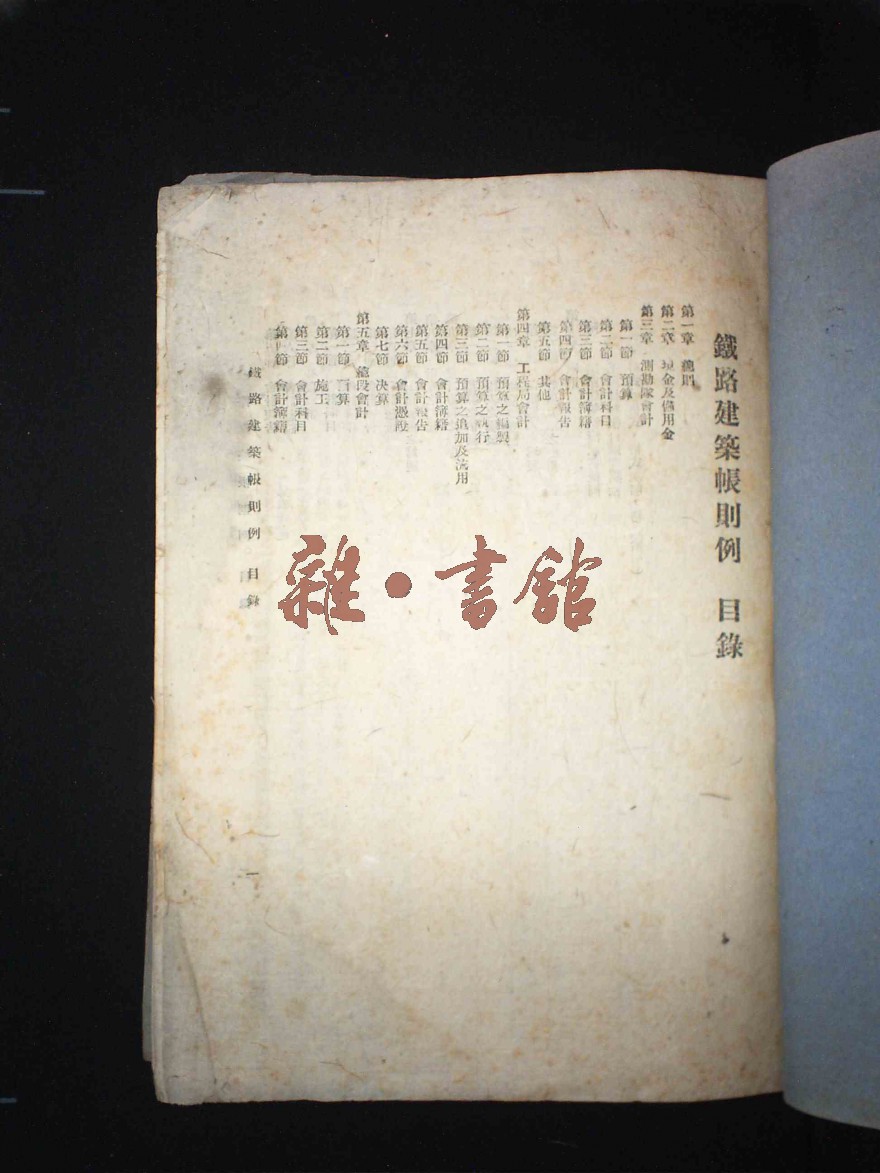 鐵路建築帳則例 目錄
第一章 總則
第二章 現金及備用金
第三章 測勘隊會計
第一節 預算
第二節 會計科目
第三節 會計簿籍
第四節 會計報告
第五節 其他
第四章 工程局會計
第一節 預算之編製
第二節 預算之執行
第三節 預算之追加及流用
第四節 會計簿籍
第五節 會計報告
第六節 會計憑證
第七節 決算
第五章 總段會計
第一節 預算
第二節 施工
第三節 會計科目
第四節 會計簿籍
鐵路建築帳則例 目錄 一
雜·書館